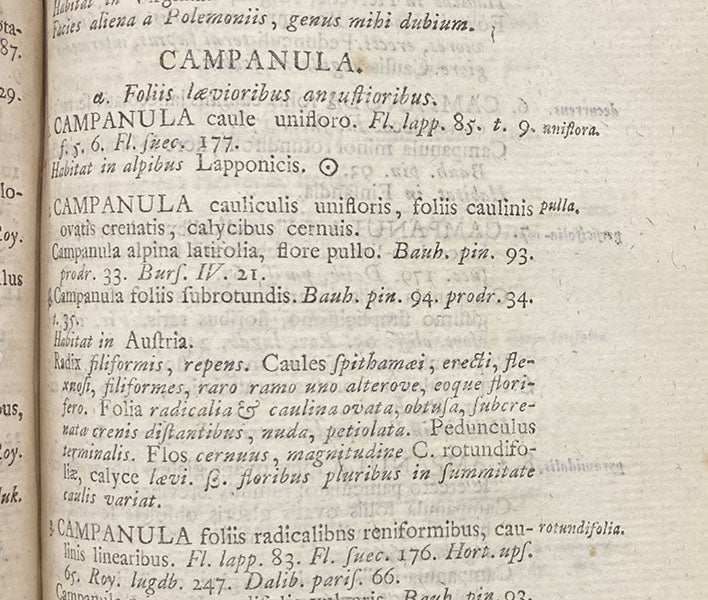 Facies aliena a Polemoniis, genus mihi dubium.
CAMPANULA.
α. Foliis lævioribus angustioribus.
CAMPANULA caule unifloro. Fl. lapp. 85. t. 9. uniflora.
f. 5. 6. Fl. ſuec. 177.
Habitat in alpibus Lapponicis. ☉
CAMPANULA cauliculis unifloris, foliis caulinis pulla.
ovatis crenatis, calycibus cernuis.
Campanula alpina latifolia, flore pullo. Bauh. pin. 93.
prodr. 33. Burſ. IV. 21.
Campanula foliis ſubrotundis. Bauh. pin. 94. prodr. 34.
t. 35.
Habitat in Auſtria.
Radix filiformis, repens. Caules ſpithamæi, erecti, fle-
xuoſi, filiformes, raro ramo uno alterove, eoque flori-
fero. Folia radicalia & caulina ovata, obtuſa, ſubcre-
nata crenis diſtantibus, nuda, petiolata. Pedunculus
terminalis. Flos cernuus, magnitudine C. rotundifo-
liæ, calyce lævi. β. floribus pluribus in ſummitate
caulis variat.
CAMPANULA foliis radicalibus reniformibus, cau- rotundifolia.
linis linearibus. Fl. lapp. 83. Fl. ſuec. 176. Hort. upſ.
65. Roy. lugdb. 247. Dalib. pariſ. 66.
Bauh. pin. 93.